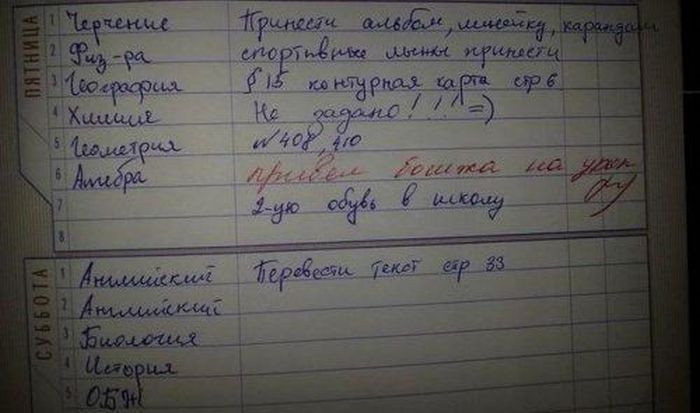 ПЯТНИЦА
1 Черчение Принести альбом, линейку, карандаш
2 Физ-ра спортивные лыжы принести
3 География § 15 контурная карта стр 6
4 Химия Не задано! ! ! =)
5 Геометрия №408, 410
6 Алгебра привел бомжа на урок
7 2-ую обувь в школу
8
СУББОТА
1 Английский Перевести текст стр 33
2 Английский
3 Биология
4 История
5 ОБЖ